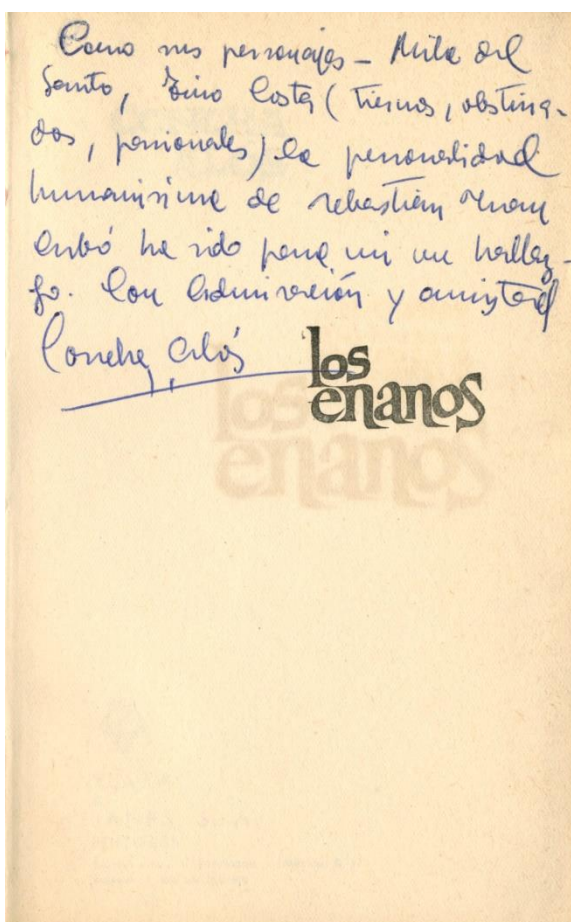 Como sus personajes - Mila del
Santo, Tino Costa (tiernos, obstina-
dos, pasionales) la personalidad
humanísima de Sebastián Juan
Arbó ha sido para mí un hallaz-
go. Con admiración y amistad
Concha Alós
los
enanos